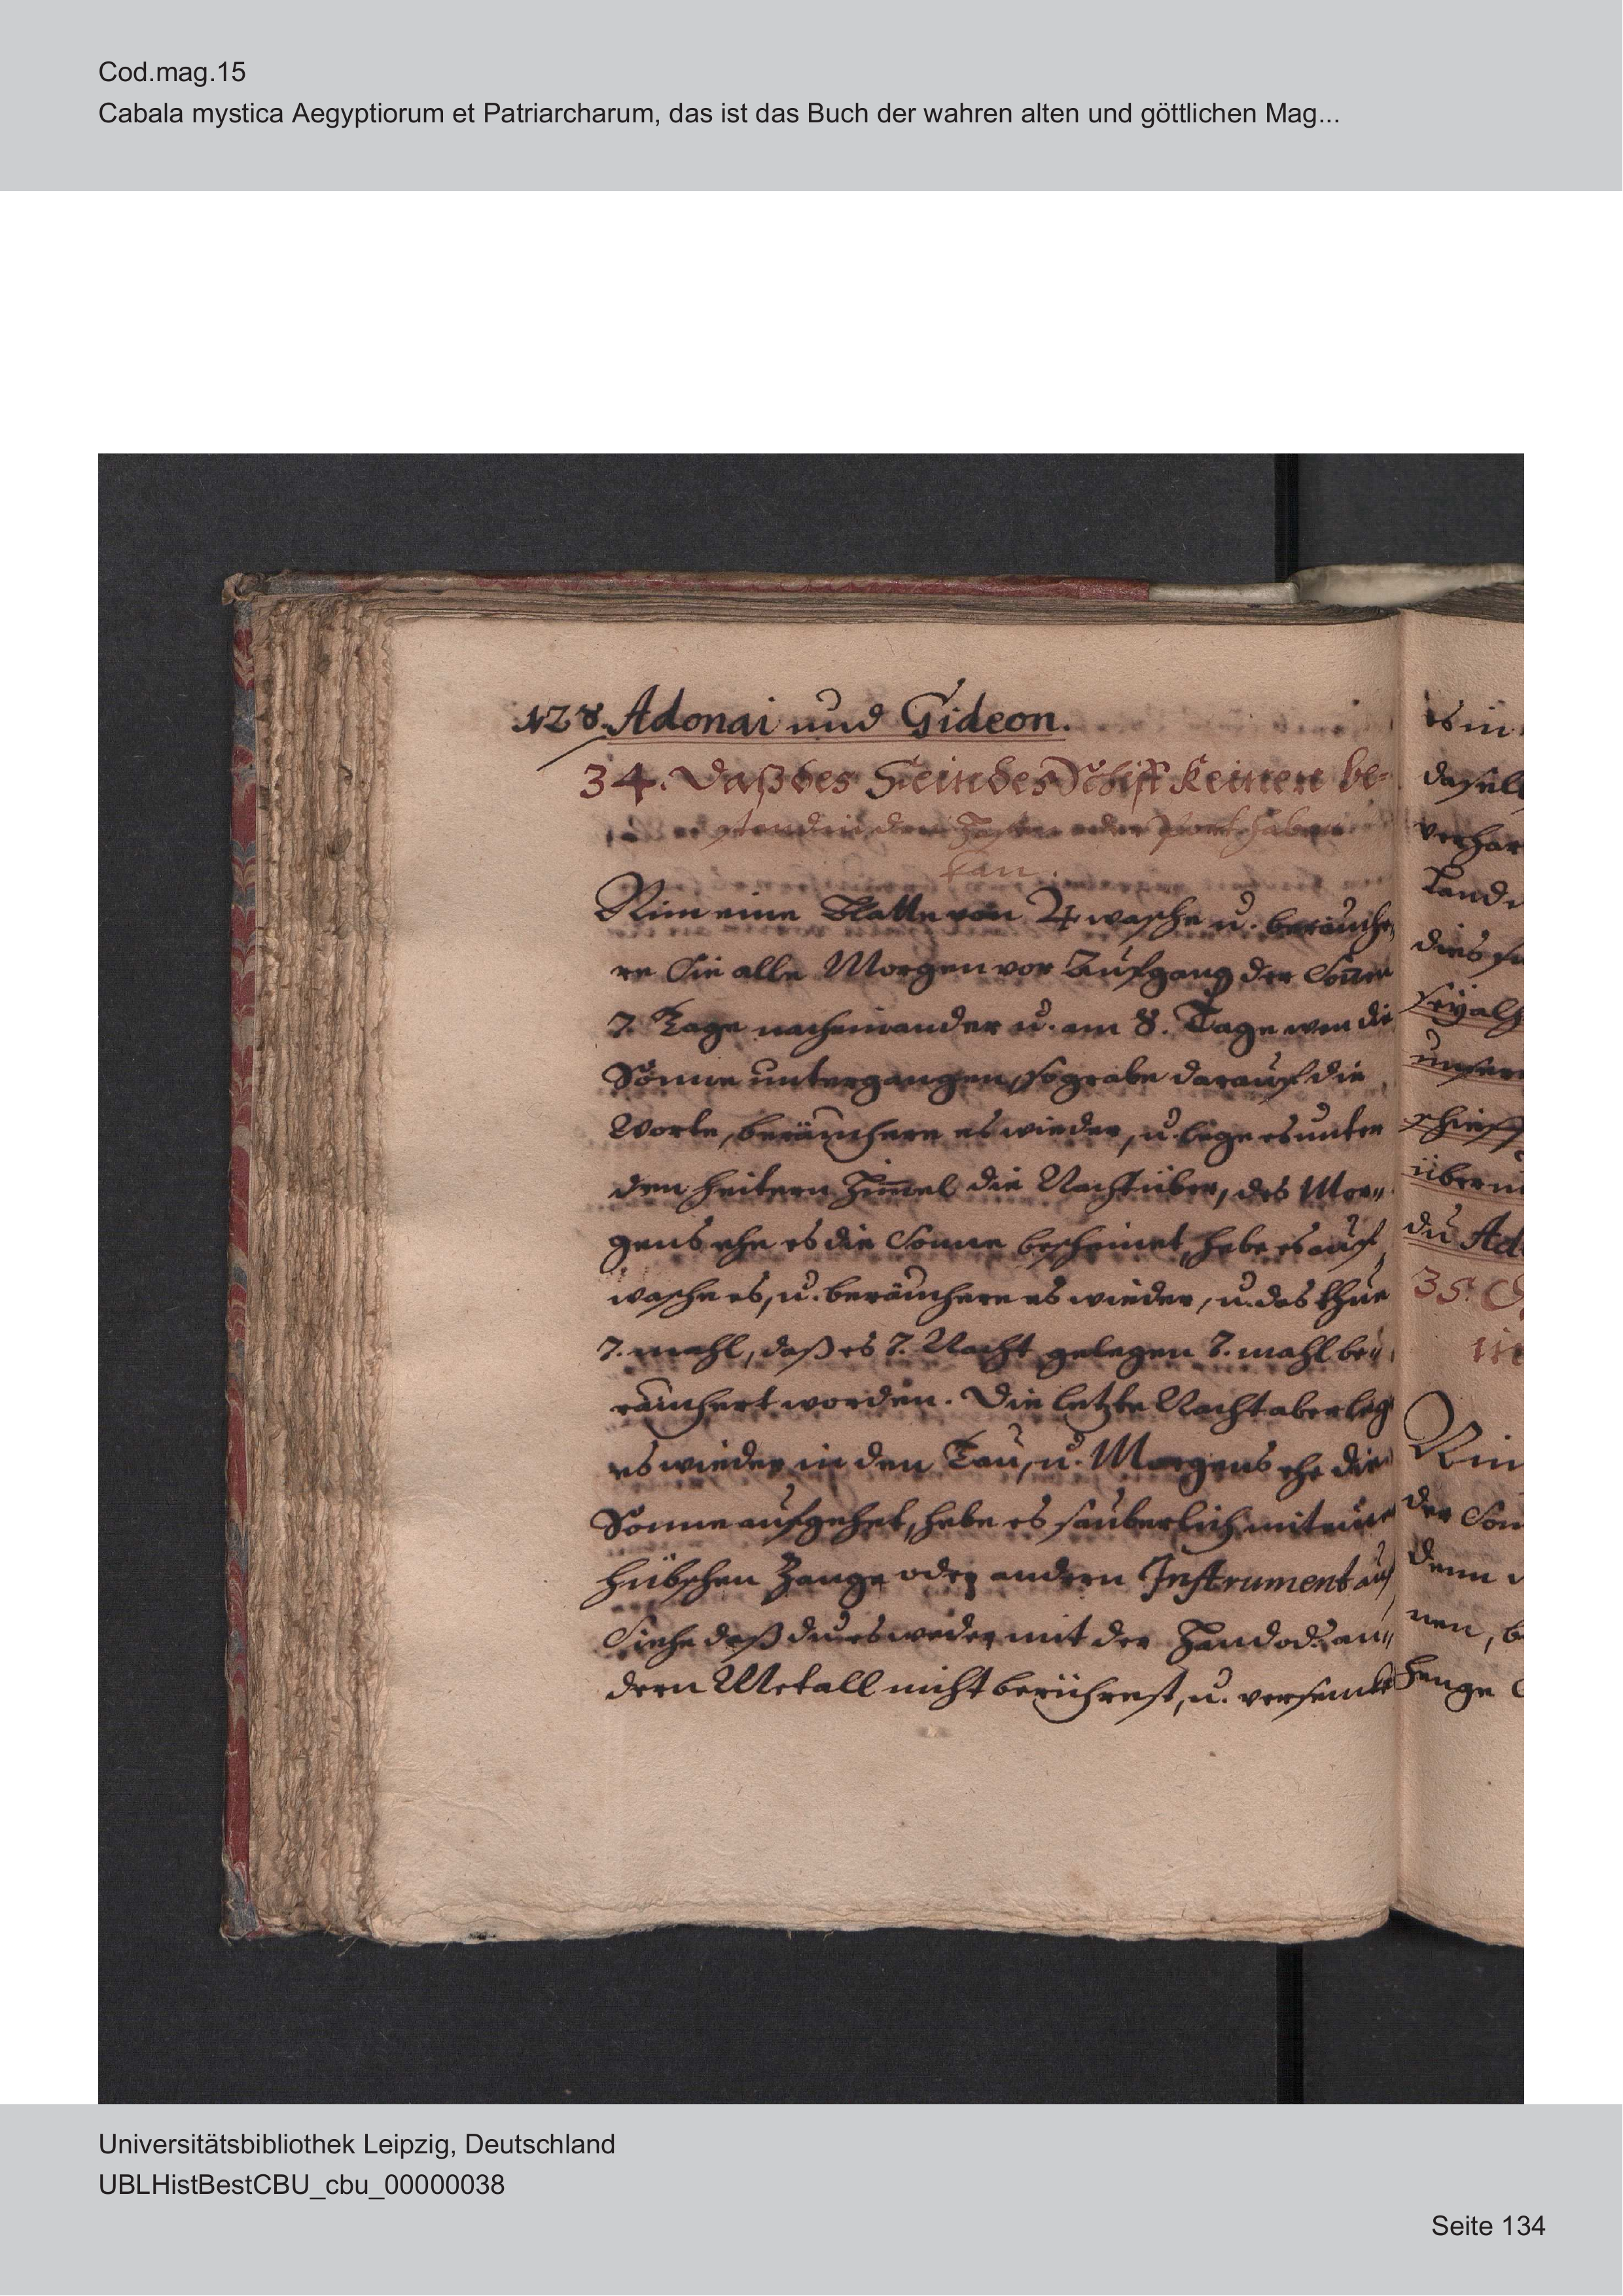 Cod.mag.15
Cabala mystica Aegyptiorum et Patriarcharum, das ist das Buch der wahren alten und göttlichen Mag...
128. Adonai und Gideon.
34. Daß des Feindes Schiff keinen be=
standt in den Hafen oder Port haben
kan.
Nim eine Platte von ♃ wasche u. beräuche
re Sie alle Morgen vor Aufgang der Sonne
7. Tage nacheinander u. am 8. Tage wen die
Sonne untergangen, so grabe darauf die
Worte, beräuchere es wieder, u. lege es unter
den heitern Him̅el die Nacht über, des Mor„
gens ehe es die Sonne bescheinet, hebe es auf,
wasche es, u. beräuchere es wieder, u. das thue
7. mahl, daß es 7. Nacht gelegen 7. mahl be„
räuchert worden. Die letzte Nacht aber leg
es wieder in den Tau, u. Morgens ehe die
Sonne aufgehet, hebe es säuberlich mit eine
hübschen Zange oder andern Instrument auf,
Siehe daß du es weder mit der Hand od. an„
dern Metall nicht berührest, u. versenke
es in
daselb
verhar
Lande
dies
unser
schieff
über
du Ad
35.
Nim
der Son
denn
nen, b
henge
Universitätsbibliothek Leipzig, Deutschland
UBLHistBestCBU_cbu_00000038
Seite 134